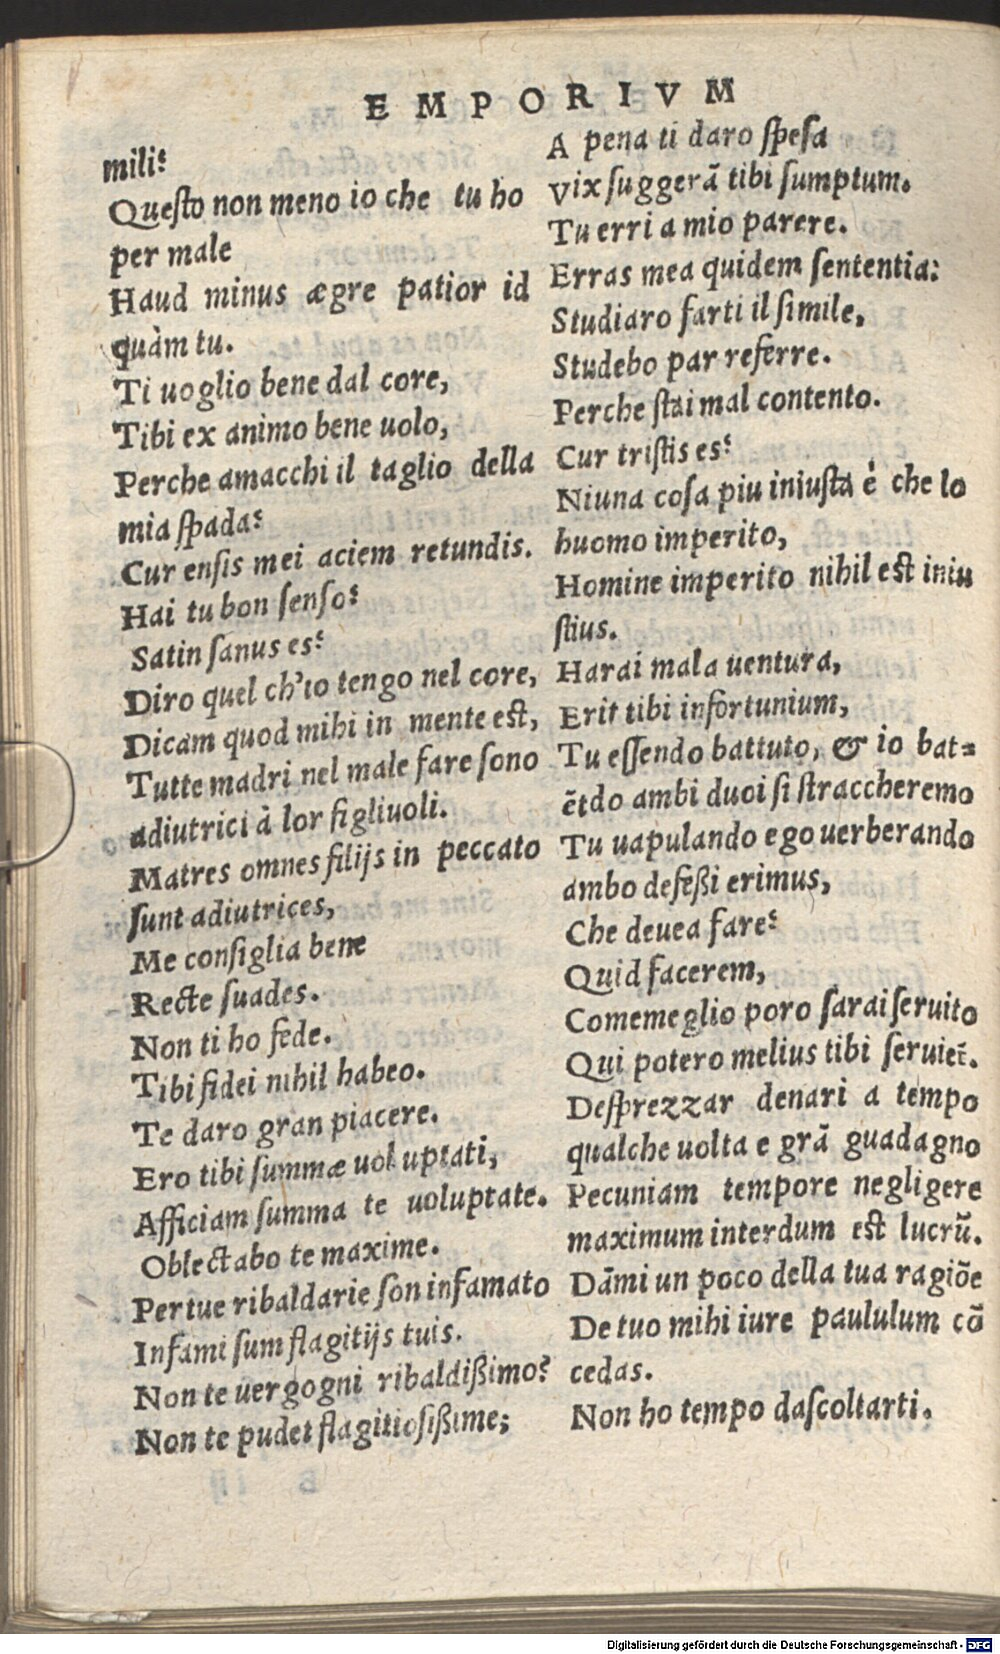 EMPORIVM
mili?
Questo non meno io che tu ho
per male
Haud minus ægre patior id
quàm tu.
Ti uoglio bene dal core,
Tibi ex animo bene uolo,
Perche amacchi il taglio della
mia spada?
Cur ensis mei aciem retundis.
Hai tu bon senso?
Satin sanus es?
Diro quel ch'io tengo nel core,
Dicam quod mihi in mente est,
Tutte madri nel male fare sono
adiutrici à lor figliuoli.
Matres omnes filijs in peccato
sunt adiutrices,
Me consiglia bene
Recte suades.
Non ti ho fede.
Tibi fidei nihil habeo.
Te daro gran piacere.
Ero tibi summæ uoluptati,
Afficiam summa te uoluptate.
Oblectabo te maxime.
Per tue ribaldarie son infamato
Infami sum flagitijs tuis.
Non te uergogni ribaldißimo?
Non te pudet flagitiosißime;
A pena ti daro spesa
Vix suggerã tibi sumptum.
Tu erri a mio parere.
Erras mea quidem sententia:
Studiaro farti il simile,
Studebo par referre.
Perche stai mal contento.
Cur tristis es?
Niuna cosa piu iniusta è che lo
huomo imperito,
Homine imperito nihil est iniu
stius.
Harai mala uentura,
Erit tibi infortunium,
Tu essendo battuto, & io bat-
ẽtdo ambi duoi si straccheremo
Tu uapulando ego uerberando
ambo defeßi erimus,
Che deuea fare?
Quid facerem,
Come meglio poro sarai seruito
Qui potero melius tibi seruiet̃.
Desprezzar denari a tempo
qualche uolta e grã guadagno
Pecuniam tempore negligere
maximum interdum est lucrũ.
Dãmi un poco della tua ragiõe
De tuo mihi iure paululum cõ
cedas.
Non ho tempo dascoltarti.
Digitalisierung gefördert durch die Deutsche Forschungsgemeinschaft - DFG